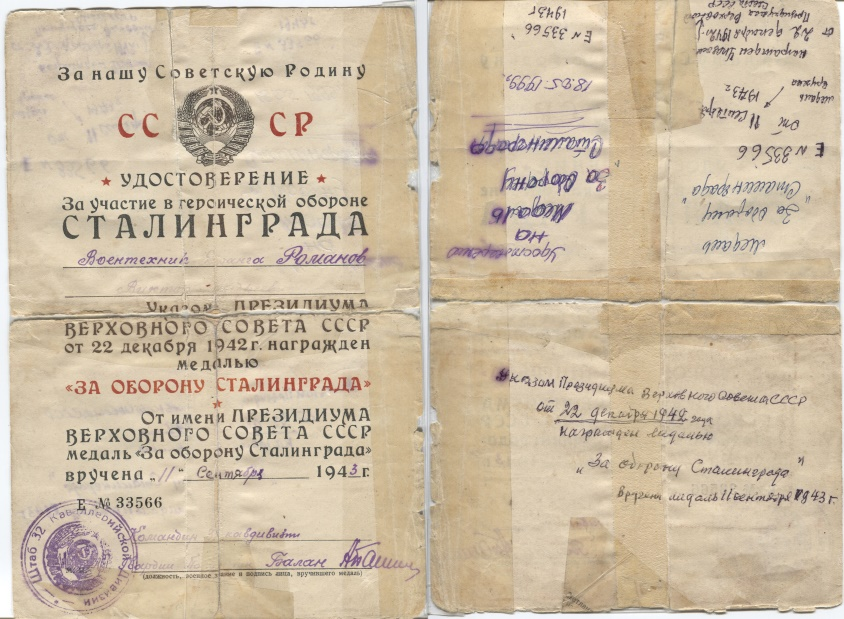 За нашу Советскую Родину
СССР
УДОСТОВЕРЕНИЕ
За участие в героической обороне
СТАЛИНГРАДА
Воентехник ранга Романов
Указом ПРЕЗИДИУМА
ВЕРХОВНОГО СОВЕТА СССР
от 22 декабря 1942 г. награжден
медалью
«ЗА ОБОРОНУ СТАЛИНГРАДА»
От имени ПРЕЗИДИУМА
ВЕРХОВНОГО СОВЕТА СССР
медаль «За оборону Сталинграда»
вручена „11" Сентября 1943 г.
Е № 33566
Командир кавдивизии
Балан
(должность, военное звание и подпись лица, вручившего медаль)
Штаб 32 Кавалерийской Дивизии
Удостоверение
на
Медаль
За Оборону
Сталинграда
18.05-1999г
Е N 33566
1943г
Медаль
„За оборону
Сталинграда"
Е N 33566
От 11 Сентября
1943г
медаль
вручена
награжден Указом
от 22 декабря 1942г.
Президиума Верховного
Совета СССР
Указом Президиума Верховного Совета СССР
от 22 декабря 1942 года
награжден медалью
„За оборону Сталинграда"
вручена медаль 11 сентября 1943 г.